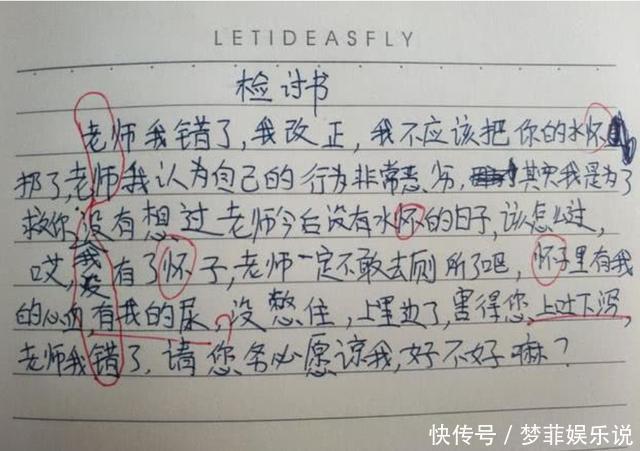 LETIDEASFLY
检讨书
老师我错了,我改正,我不应该把你的水怀
扔了,老师我认为自己的行为非常恶劣,其实我是为了
救你,没有想过老师今后没有水怀的日子,该怎么过,
哎,我没有了怀子,老师一定不敢去厕所了吧,怀子里有我
的心血,有我的尿,没憋住,上里边了,害得您上吐下泻,
老师我错了,请您务必愿谅我,好不好嘛?
快传号/梦菲娱乐说